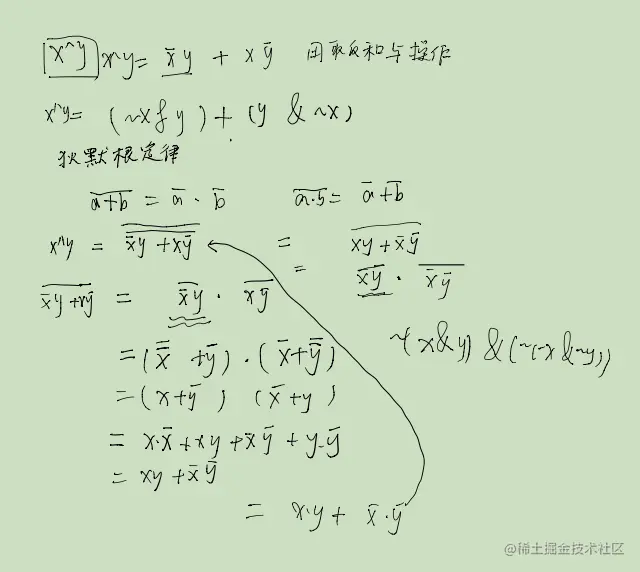 x^y x^y= x̅y + xy̅ 用取反和与操作
x^y= (~x & y) + (y & ~x)
狄默根定律
\overline{a+b} = a̅ · b̅    \overline{a·b} = a̅+b̅
x^y = \overline{\overline{x̅y + xy̅}} = \overline{xy + x̅y̅}
= \overline{xy} · \overline{x̅y̅}
\overline{x̅y+xy̅} = \overline{x̅y} · \overline{xy̅}
~(x&y) & (~(~x&~y))
=(\overline{x̅} + y̅) · (x̅ + \overline{y̅})
=(x+y̅) (x̅+y)
= x·x̅+xy+x̅y̅+y·y̅
= xy+x̅y̅
= x·y+ x̅·y̅
@稀土掘金技术社区